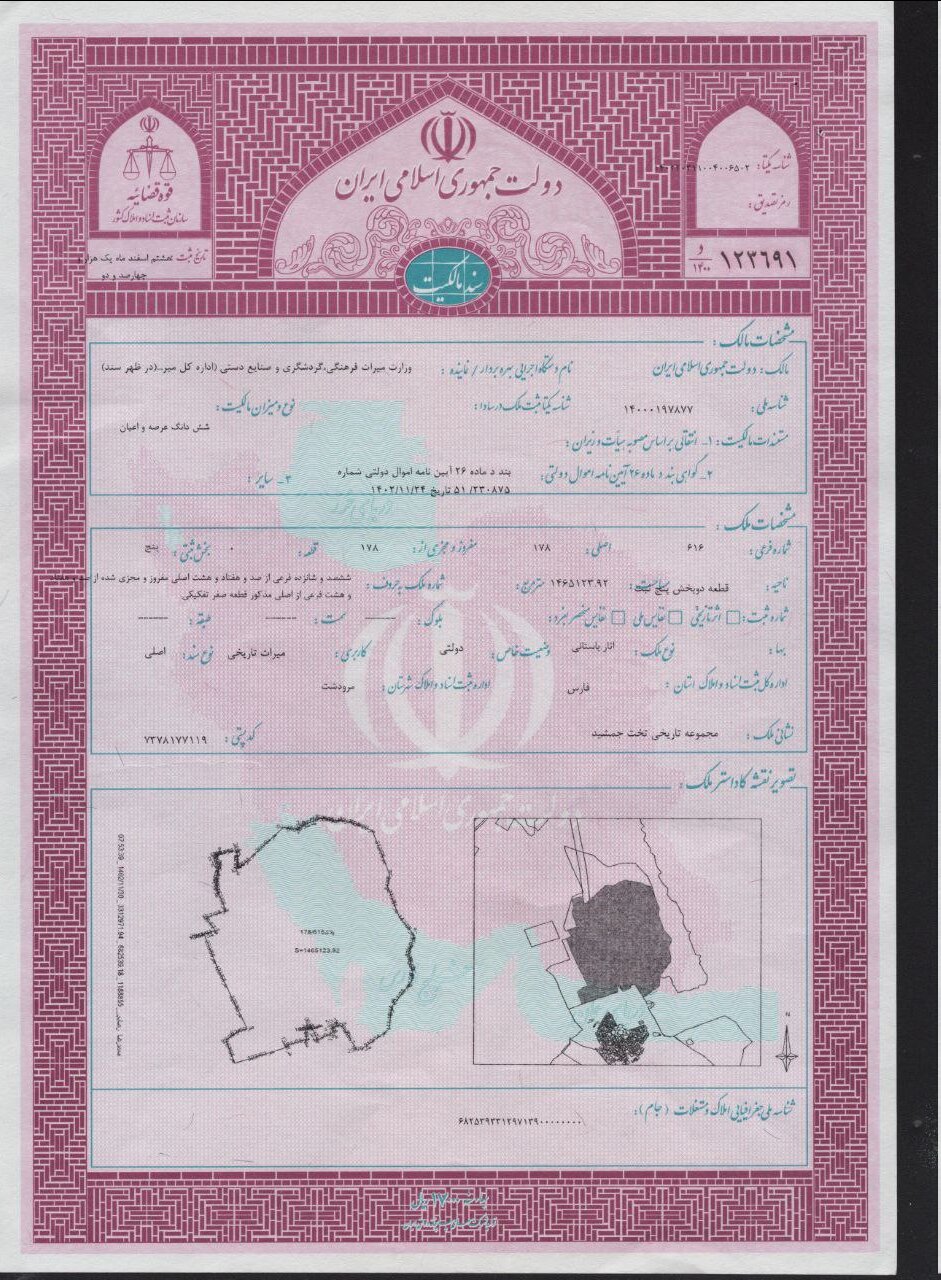 دولت جمهوری اسلامی ایران
قوه قضائیه
سازمان ثبت اسناد و املاک کشور
تاریخ ثبت: هشتم اسفند ماه یک هزار و
چهارصد و دو
شناسه یکتا:
رمز تصدیق:
۱۲۳۶۹۱ و ۱۴۰۰
سند مالکیت
مشخصات مالک:
مالک: دولت جمهوری اسلامی ایران نام دستگاه اجرایی بهره بردار / نماینده : وزارت میراث فرهنگی،گردشگری و صنایع دستی (اداره کل میر...(در ظهر سند)
شناسه ملی: ۱۴۰۰۰۱۹۷۸۷۷ شناسه یکتا ثبت ملک در سادا: نوع و میزان مالکیت: شش دانگ عرصه و اعیان
مستندات مالکیت: ۱- انتقالی بر اساس مصوبه هیأت وزیران:
۲- گواهی بند د ماده ۲۶ آیین نامه اموال دولتی: بند د ماده ۲۶ آیین نامه اموال دولتی شماره
۵۱/۲۳۰۸۷۵ تاریخ ۱۴۰۲/۱۱/۲۴
۳- سایر :
مشخصات ملک:
شماره فرعی: ۶۱۶ اصلی: ۱۷۸ مفروز و مجزی از: ۱۷۸ قطعه: ۰ بخش ثبتی: پنج
ناحیه: قطعه دوبخش پنج ثبت مساحت: ۱۴۶۵۱۲۳.۹۲ متر مربع: شماره ملک به حروف: ششصد و شانزده فرعی از صد و هفتاد و هشت اصلی مفروز و مجزی شده از صد و هفتاد
و هشت فرعی از اصلی مذکور قطعه صفر تفکیکی.
شماره ثبت: اثر تاریخی نفایس ملی نفایس منحصر بفرد: بلوک: ------- سمت: ------- طبقه: -------
بها: نوع ملک: آثار باستانی وضعیت خاص: دولتی کاربری: میراث تاریخی نوع سند: اصلی
اداره کل ثبت اسناد و املاک استان: فارس اداره ثبت اسناد و املاک شهرستان: مرودشت
نشانی ملک: مجموعه تاریخی تخت جمشید کد پستی: ۷۳۷۸۱۷۷۱۱۹
تصویر نقشه کاداستر ملک:
S=1465123.92
N
شناسه ملی جغرافیایی املاک و مستغلات (جام): ۶۸۲۵۳۹۳۳۱۲۹۷۱۳۹۰۰۰۰۰۰۰۰۰